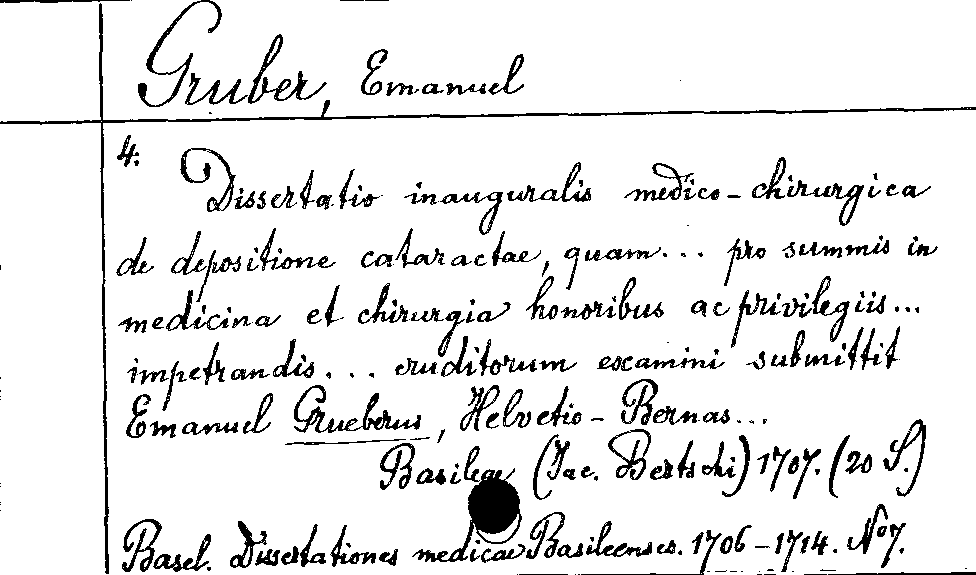 Gruber, Emanuel
4.
Dissertatio inauguralis medico-chirurgica
de depositione cataractae, quam... pro summis in
medicina et chirurgia honoribus ac privilegiis...
impetrandis... eruditorum examini submittit
Emanuel Grueberus, Helvetio-Bernas...
Basileae (Jac. Bertschi) 1707. (20 S.)
Basel. Dissertationes medicae Basileenses. 1706-1714. No 7.